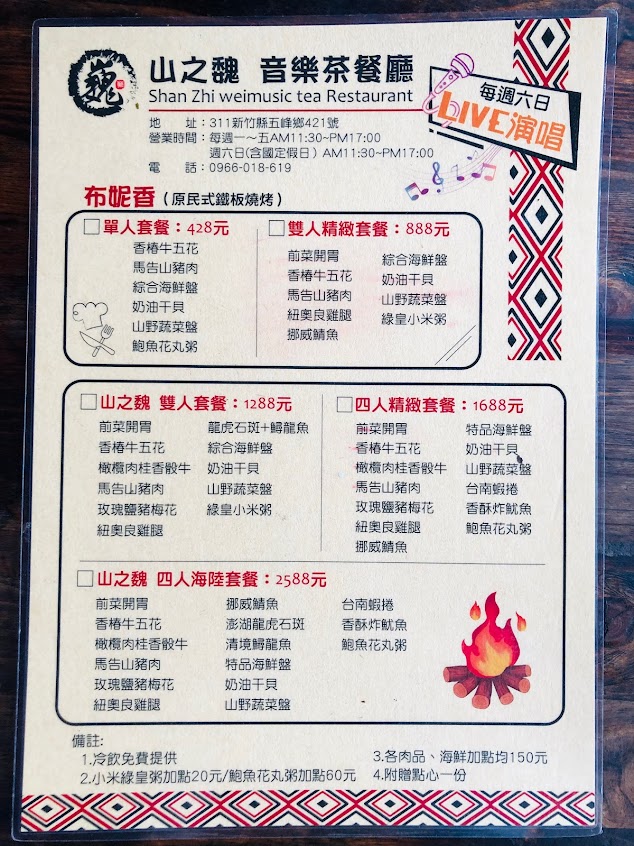 巍
山之魏 音樂茶餐廳
Shan Zhi weimusic tea Restaurant
每週六日
LIVE演唱
地 址：311新竹縣五峰鄉421號
營業時間：每週一～五AM11:30~PM17:00
週六日(含國定假日）AM11:30~PM17:00
電 話：0966-018-619
布妮香（原民式鐵板燒烤）
單人套餐：428元
香椿牛五花
馬告山豬肉
綜合海鮮盤
奶油干貝
山野蔬菜盤
鮑魚花丸粥
雙人精緻套餐：888元
前菜開胃
香椿牛五花
馬告山豬肉
紐奧良雞腿
挪威鯖魚
綜合海鮮盤
奶油干貝
山野蔬菜盤
綠皇小米粥
山之魏 雙人套餐：1288元
前菜開胃
香椿牛五花
橄欖肉桂香骰牛
馬告山豬肉
玫瑰鹽豬梅花
紐奧良雞腿
龍虎石斑+鱘龍魚
綜合海鮮盤
奶油干貝
山野蔬菜盤
綠皇小米粥
四人精緻套餐：1688元
前菜開胃
香椿牛五花
橄欖肉桂香骰牛
馬告山豬肉
玫瑰鹽豬梅花
紐奧良雞腿
挪威鯖魚
特品海鮮盤
奶油干貝
山野蔬菜盤
台南蝦捲
香酥炸魷魚
鮑魚花丸粥
山之魏 四人海陸套餐：2588元
前菜開胃
香椿牛五花
橄欖肉桂香骰牛
馬告山豬肉
玫瑰鹽豬梅花
紐奧良雞腿
挪威鯖魚
澎湖龍虎石斑
清境鱘龍魚
特品海鮮盤
奶油干貝
山野蔬菜盤
台南蝦捲
香酥炸魷魚
鮑魚花丸粥
備註:
1.冷飲免費提供
2.小米綠皇粥加點20元/鮑魚花丸粥加點60元
3.各肉品、海鮮加點均150元
4.附贈點心一份